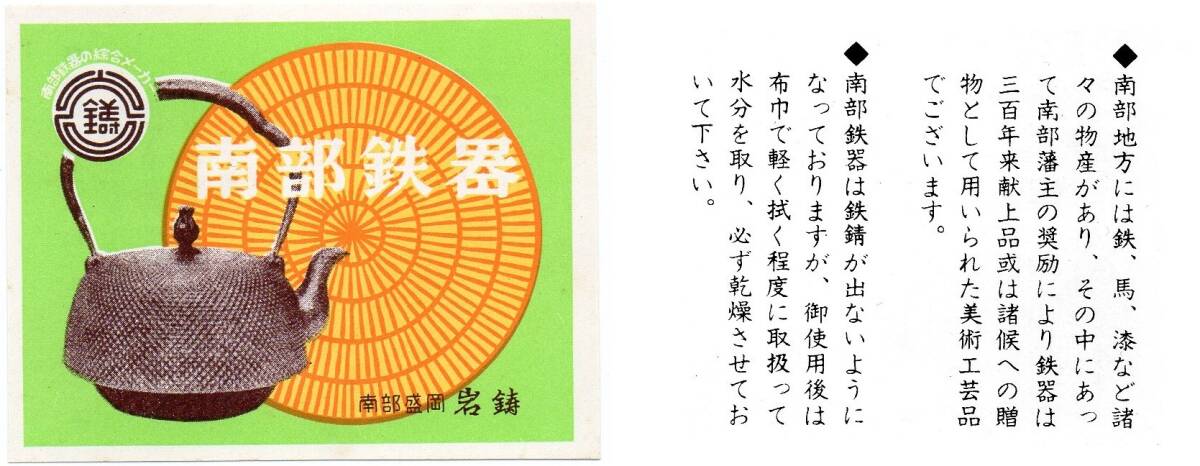 南部鉄器の綜合メーカー
南部鉄器
南部盛岡 岩鋳
◆南部地方には鉄、馬、漆など諸
々の物産があり、その中にあっ
て南部藩主の奨励により鉄器は
三百年来献上品或は諸候への贈
物として用いられた美術工芸品
でございます。
◆南部鉄器は鉄錆が出ないように
なっておりますが、御使用後は
布巾で軽く拭く程度に取扱って
水分を取り、必ず乾燥させてお
いて下さい。